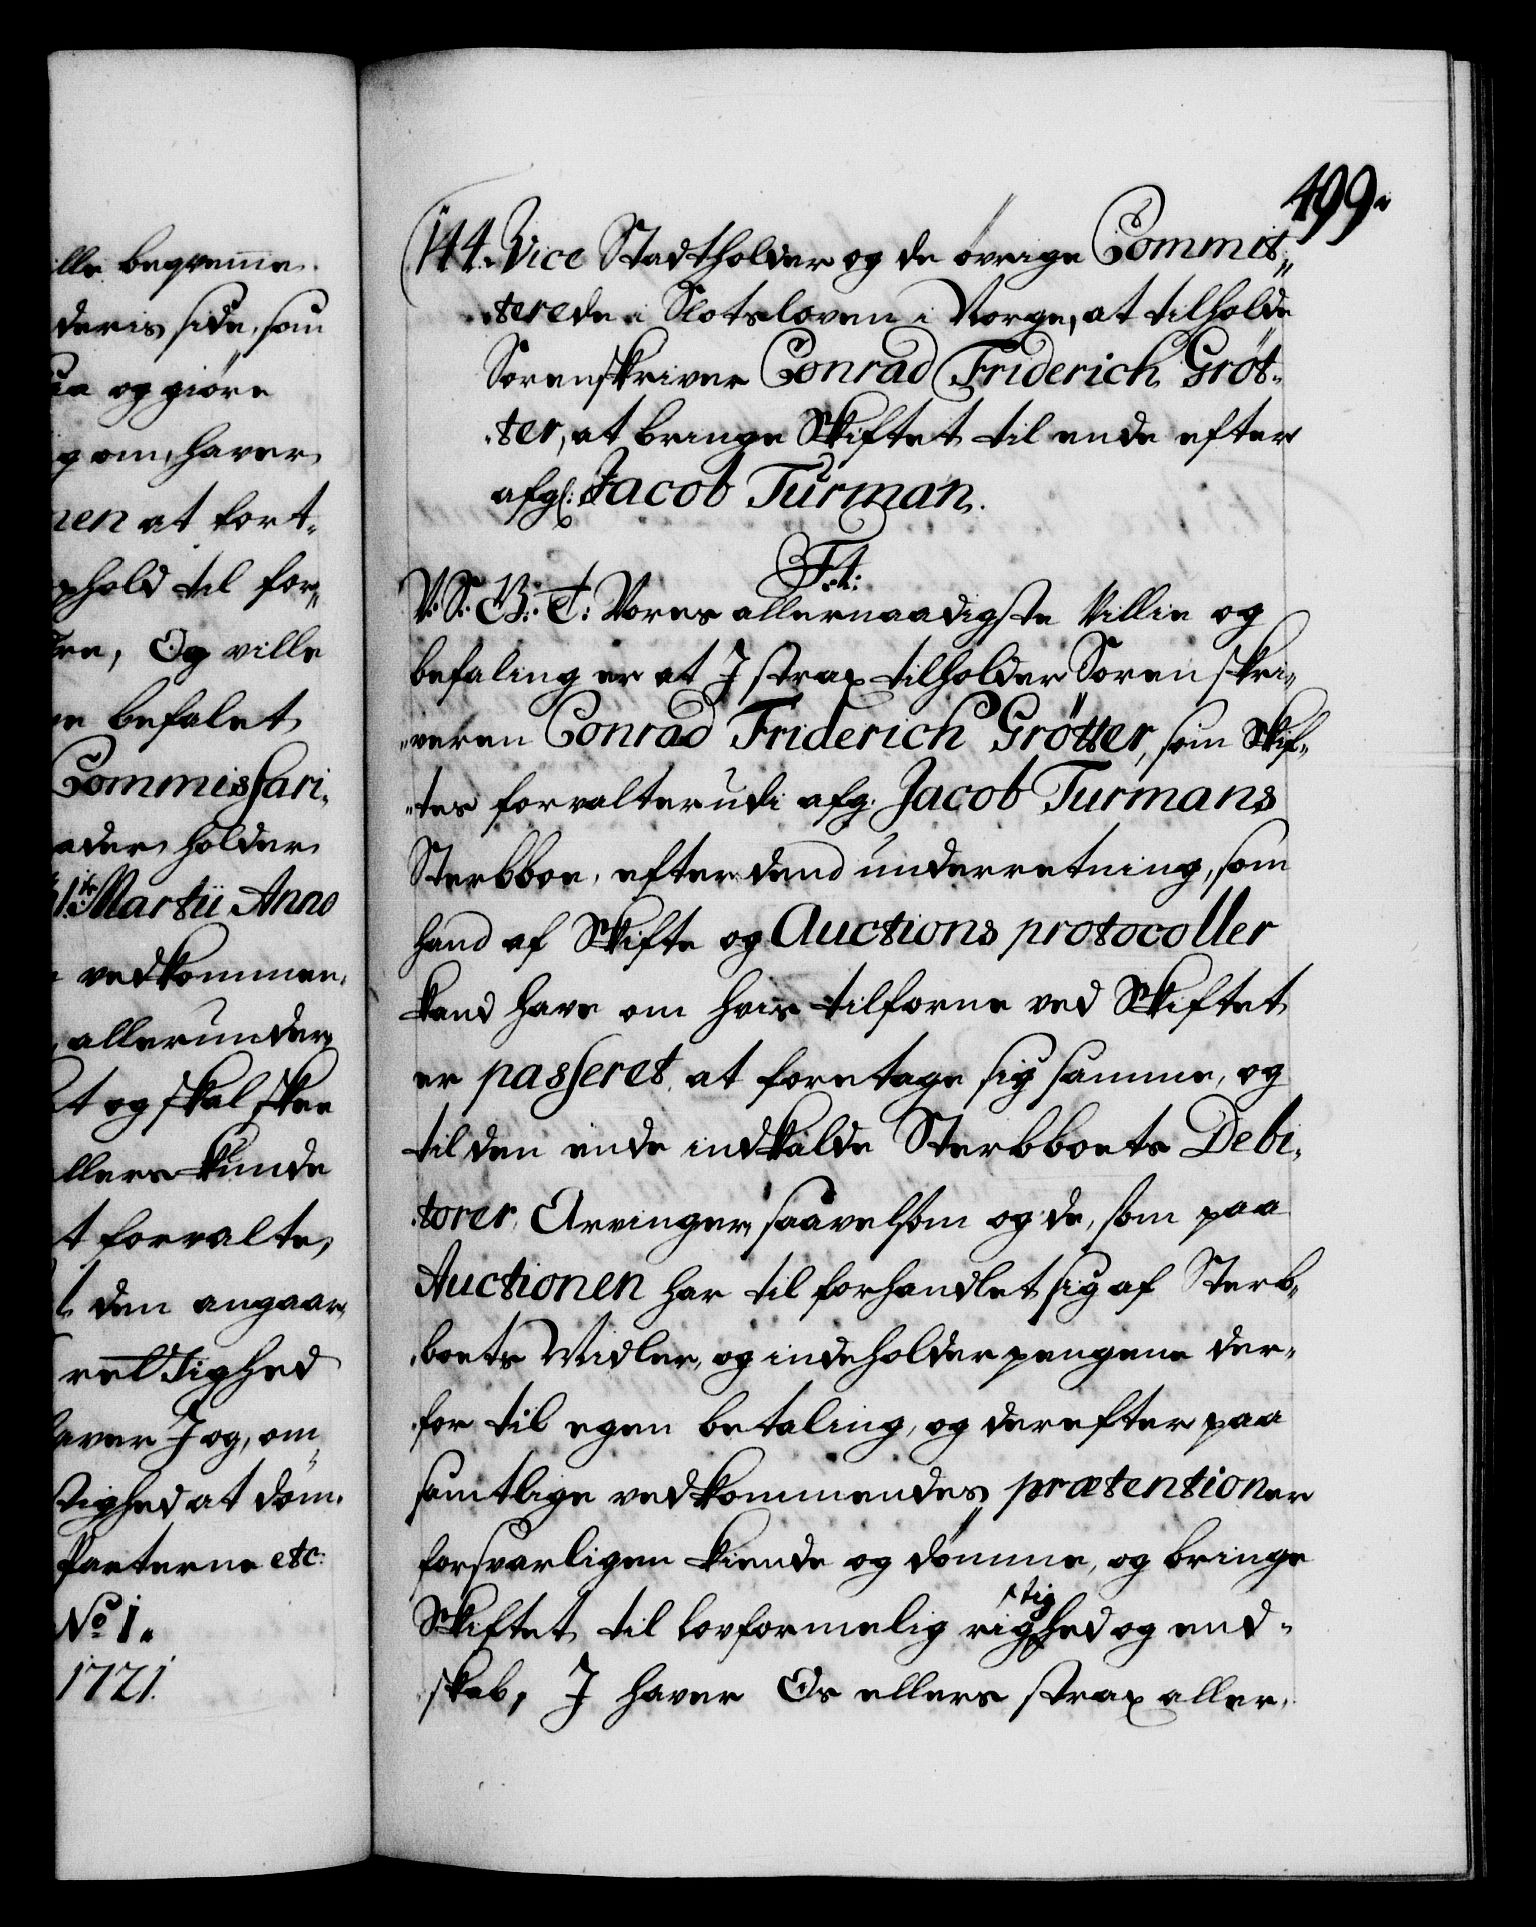 lle beqvemme
deris side, som
og giøre
om, haver
nen at fort„
phold til for„
ree, Og ville
befalet
Commissari„
holder
Martii Anno
vedkommen„
allerunder„
t og skal skee
llers kunde
t forvalte,
den angaar,
retvished
aver J og, om
at dom„
Parterne etc:
No 1.
1721.
499.
144. Vice Stadtholder og de øvrige Commit„
„terede i Slotsloven i Norge, at tilholde
Sorenskriver Conrad Friderich Gröt„
„ter, at bringe Skiftet til ende efter
afgl: Jacob Turman.
F. 4:
V: S: B: T: Vores allernaadigste Villie og
befaling er at J strax tilholder Sorenskri„
„veren Conrad Friderich Grötter, som Skif„
„tes forvalter udi afg. Jacob Turmans
Sterbboe, efter dend underretning, som
hand af Skifte og Auctions protocoller
kand have om hvis tilforne ved Skiftet
er passeret, at foretage sig samme, og
til den ende indkalde Sterbboets Debi„
„torer, Arvinger, saavelsom og de, som paa
Auctionen har tilforhandlet sig af Sterb„
„boets Midler, og indeholder pengene der„
„for til egen betaling, og derefter paa
samtlige vedkommendes prætentioner
forsvarligen kiende og dømme, og bringe
Skiftet til lovformelig rigtighed og end„
skab, J haver Os ellers strax aller„